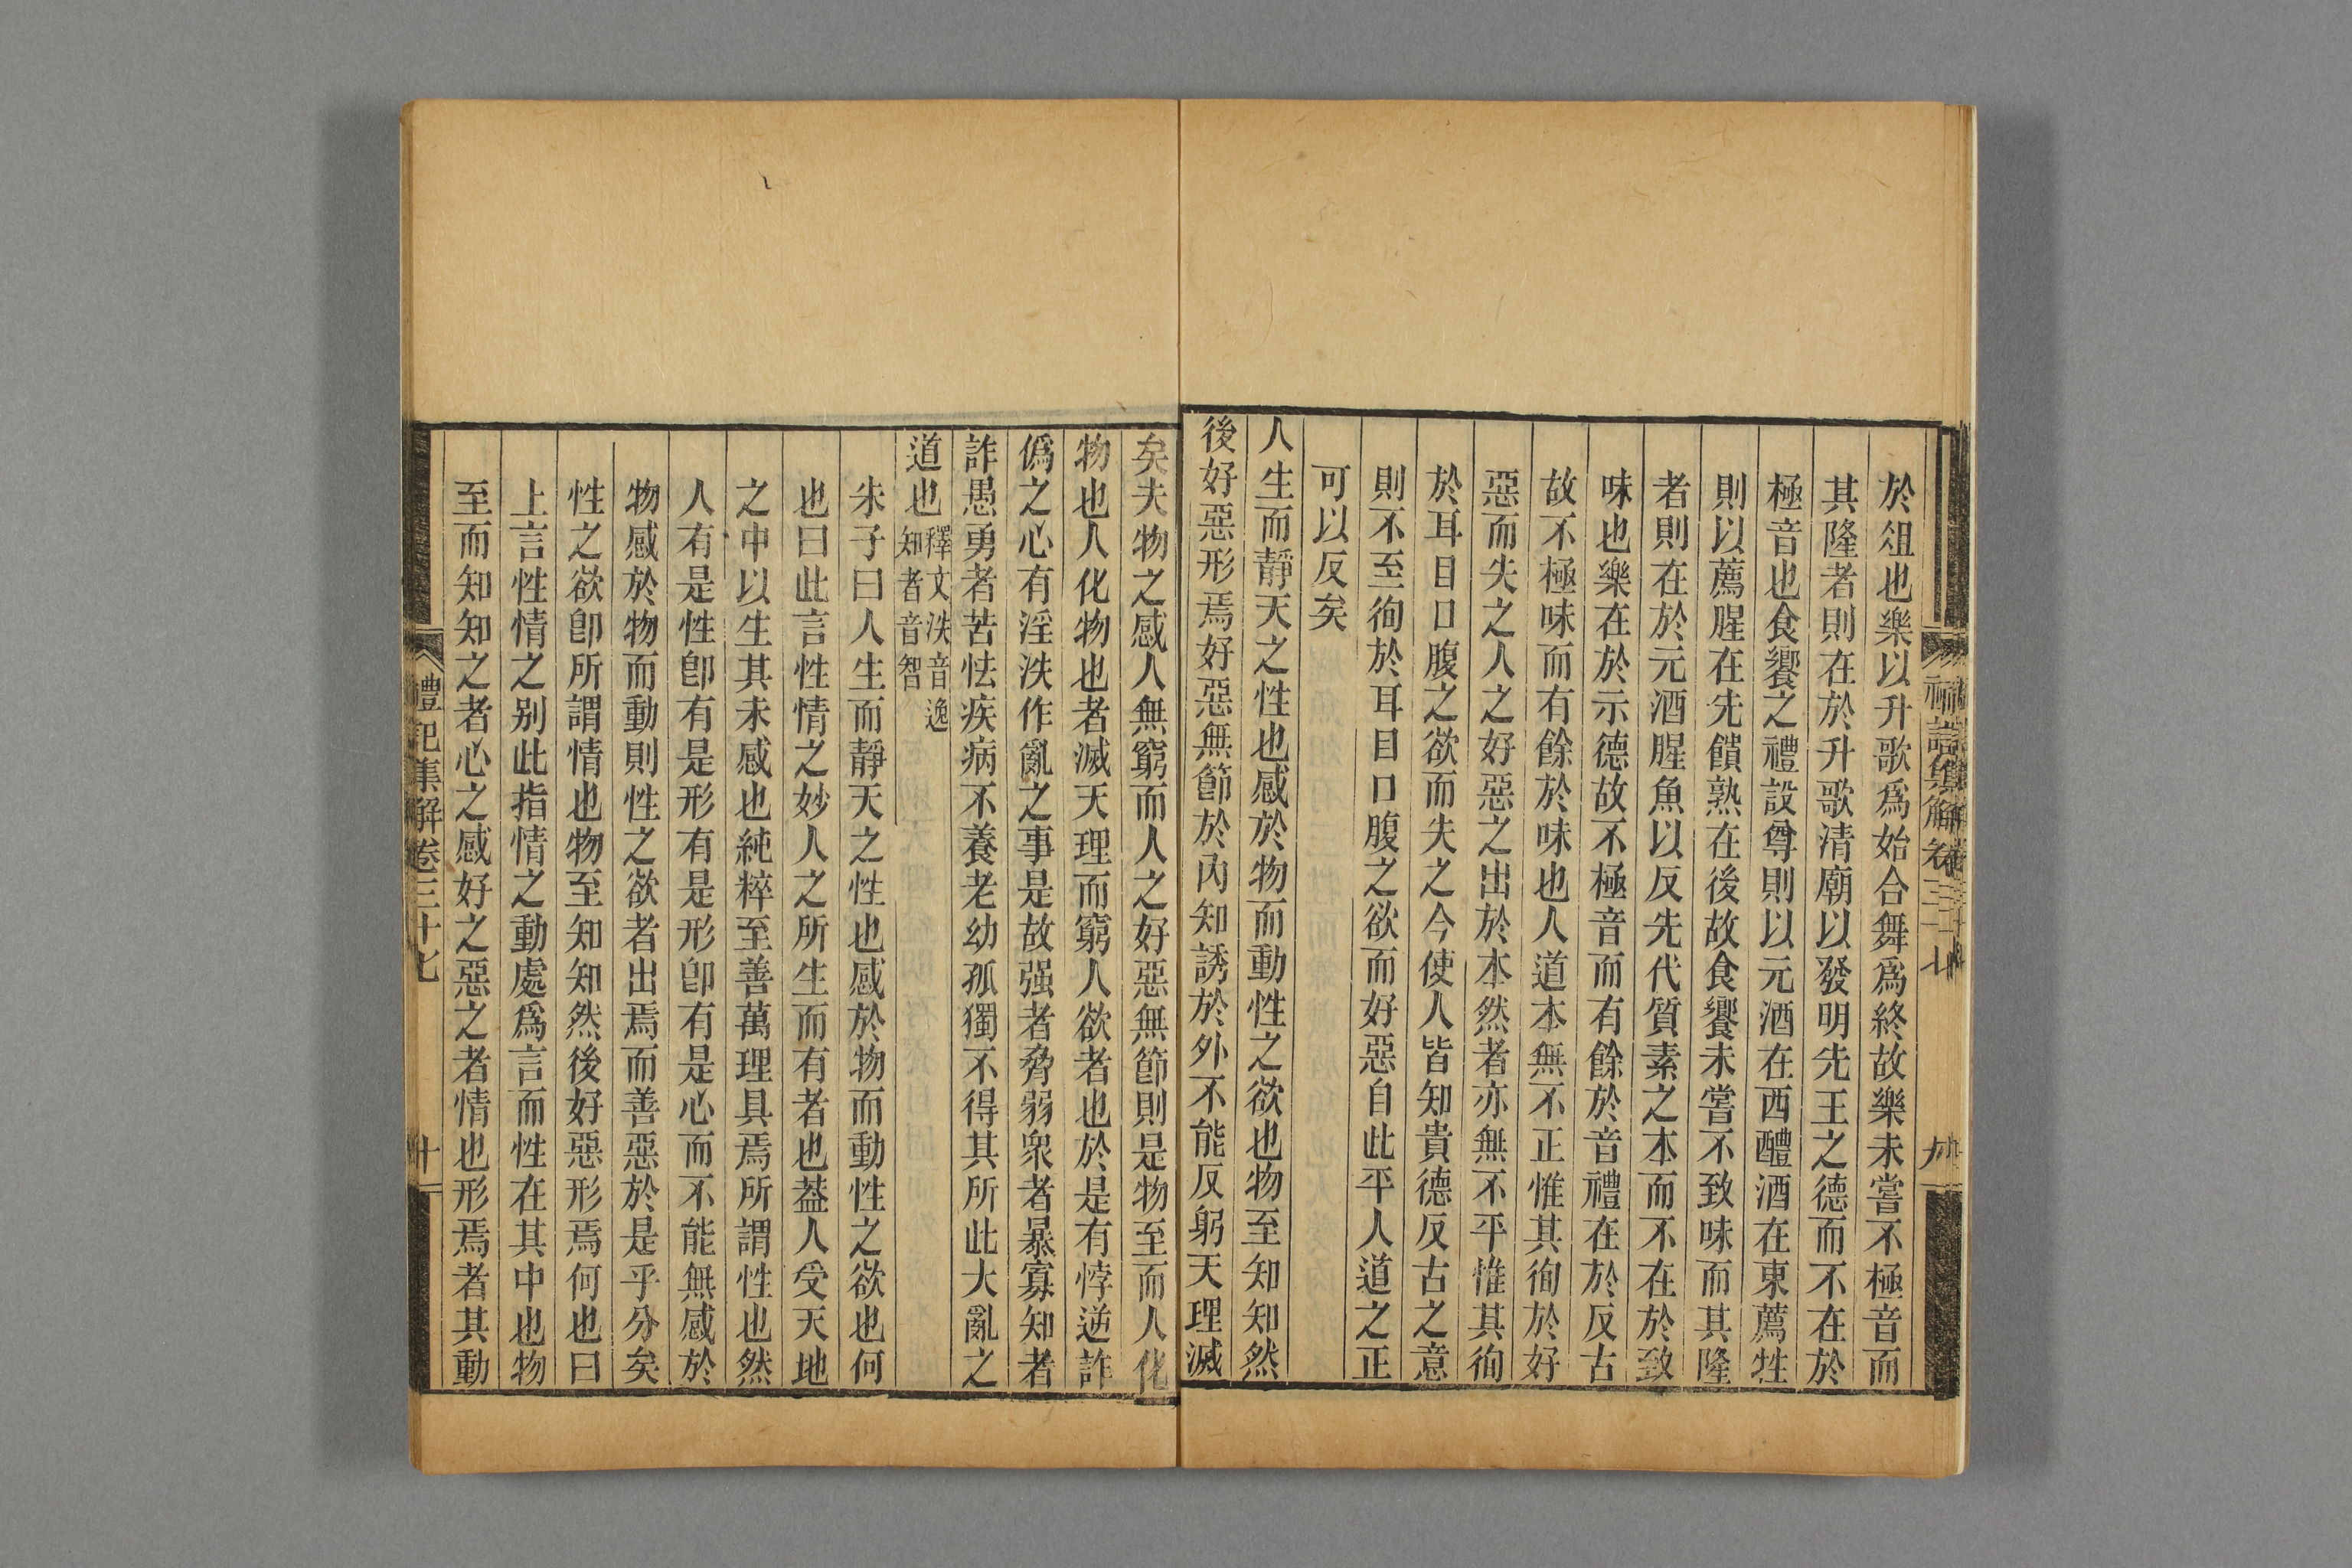 於俎也樂以升歌爲始合舞爲終故樂未嘗不極音而
其隆者則在於升歌清廟以發明先王之德而不在於
極音也食饗之禮設尊則以元酒在西醴酒在東薦牲
則以薦腥在先饋熟在後故食饗未嘗不致味而其隆
者則在於元酒腥魚以反先代質素之本而不在於致
味也樂在於示德故不極音而有餘於音禮在於反古
故不極味而有餘於味也人道本無不正惟其徇於好
惡而失之人之好惡之出於本然者亦無不平惟其徇
於耳目口腹之欲而失之今使人皆知貴德反古之意
則不至徇於耳目口腹之欲而好惡自此平人道之正
可以反矣
人生而靜天之性也感於物而動性之欲也物至知知然
後好惡形焉好惡無節於內知誘於外不能反躬天理滅
矣夫物之感人無窮而人之好惡無節則是物至而人化
物也人化物也者滅天理而窮人欲者也於是有悖逆詐
僞之心有淫泆作亂之事是故强者脅弱衆者暴寡知者
詐愚勇者苦怯疾病不養老幼孤獨不得其所此大亂之
道也釋文泆音逸
知者音智
朱子曰人生而靜天之性也感於物而動性之欲也何
也曰此言性情之妙人之所生而有者也葢人受天地
之中以生其未感也純粹至善萬理具焉所謂性也然
人有是性卽有是形有是形卽有是心而不能無感於
物感於物而動則性之欲者出焉而善惡於是乎分矣
性之欲卽所謂情也物至知知然後好惡形焉何也曰
上言性情之別此指情之動處爲言而性在其中也物
至而知知之者心之感好之惡之者情也形焉者其動
禮記集解卷三十七
十